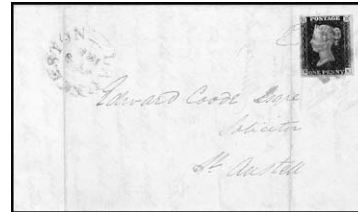 POSTAGE
ONE PENNY
Edward Coode Esqre
Solicitor
St Austell